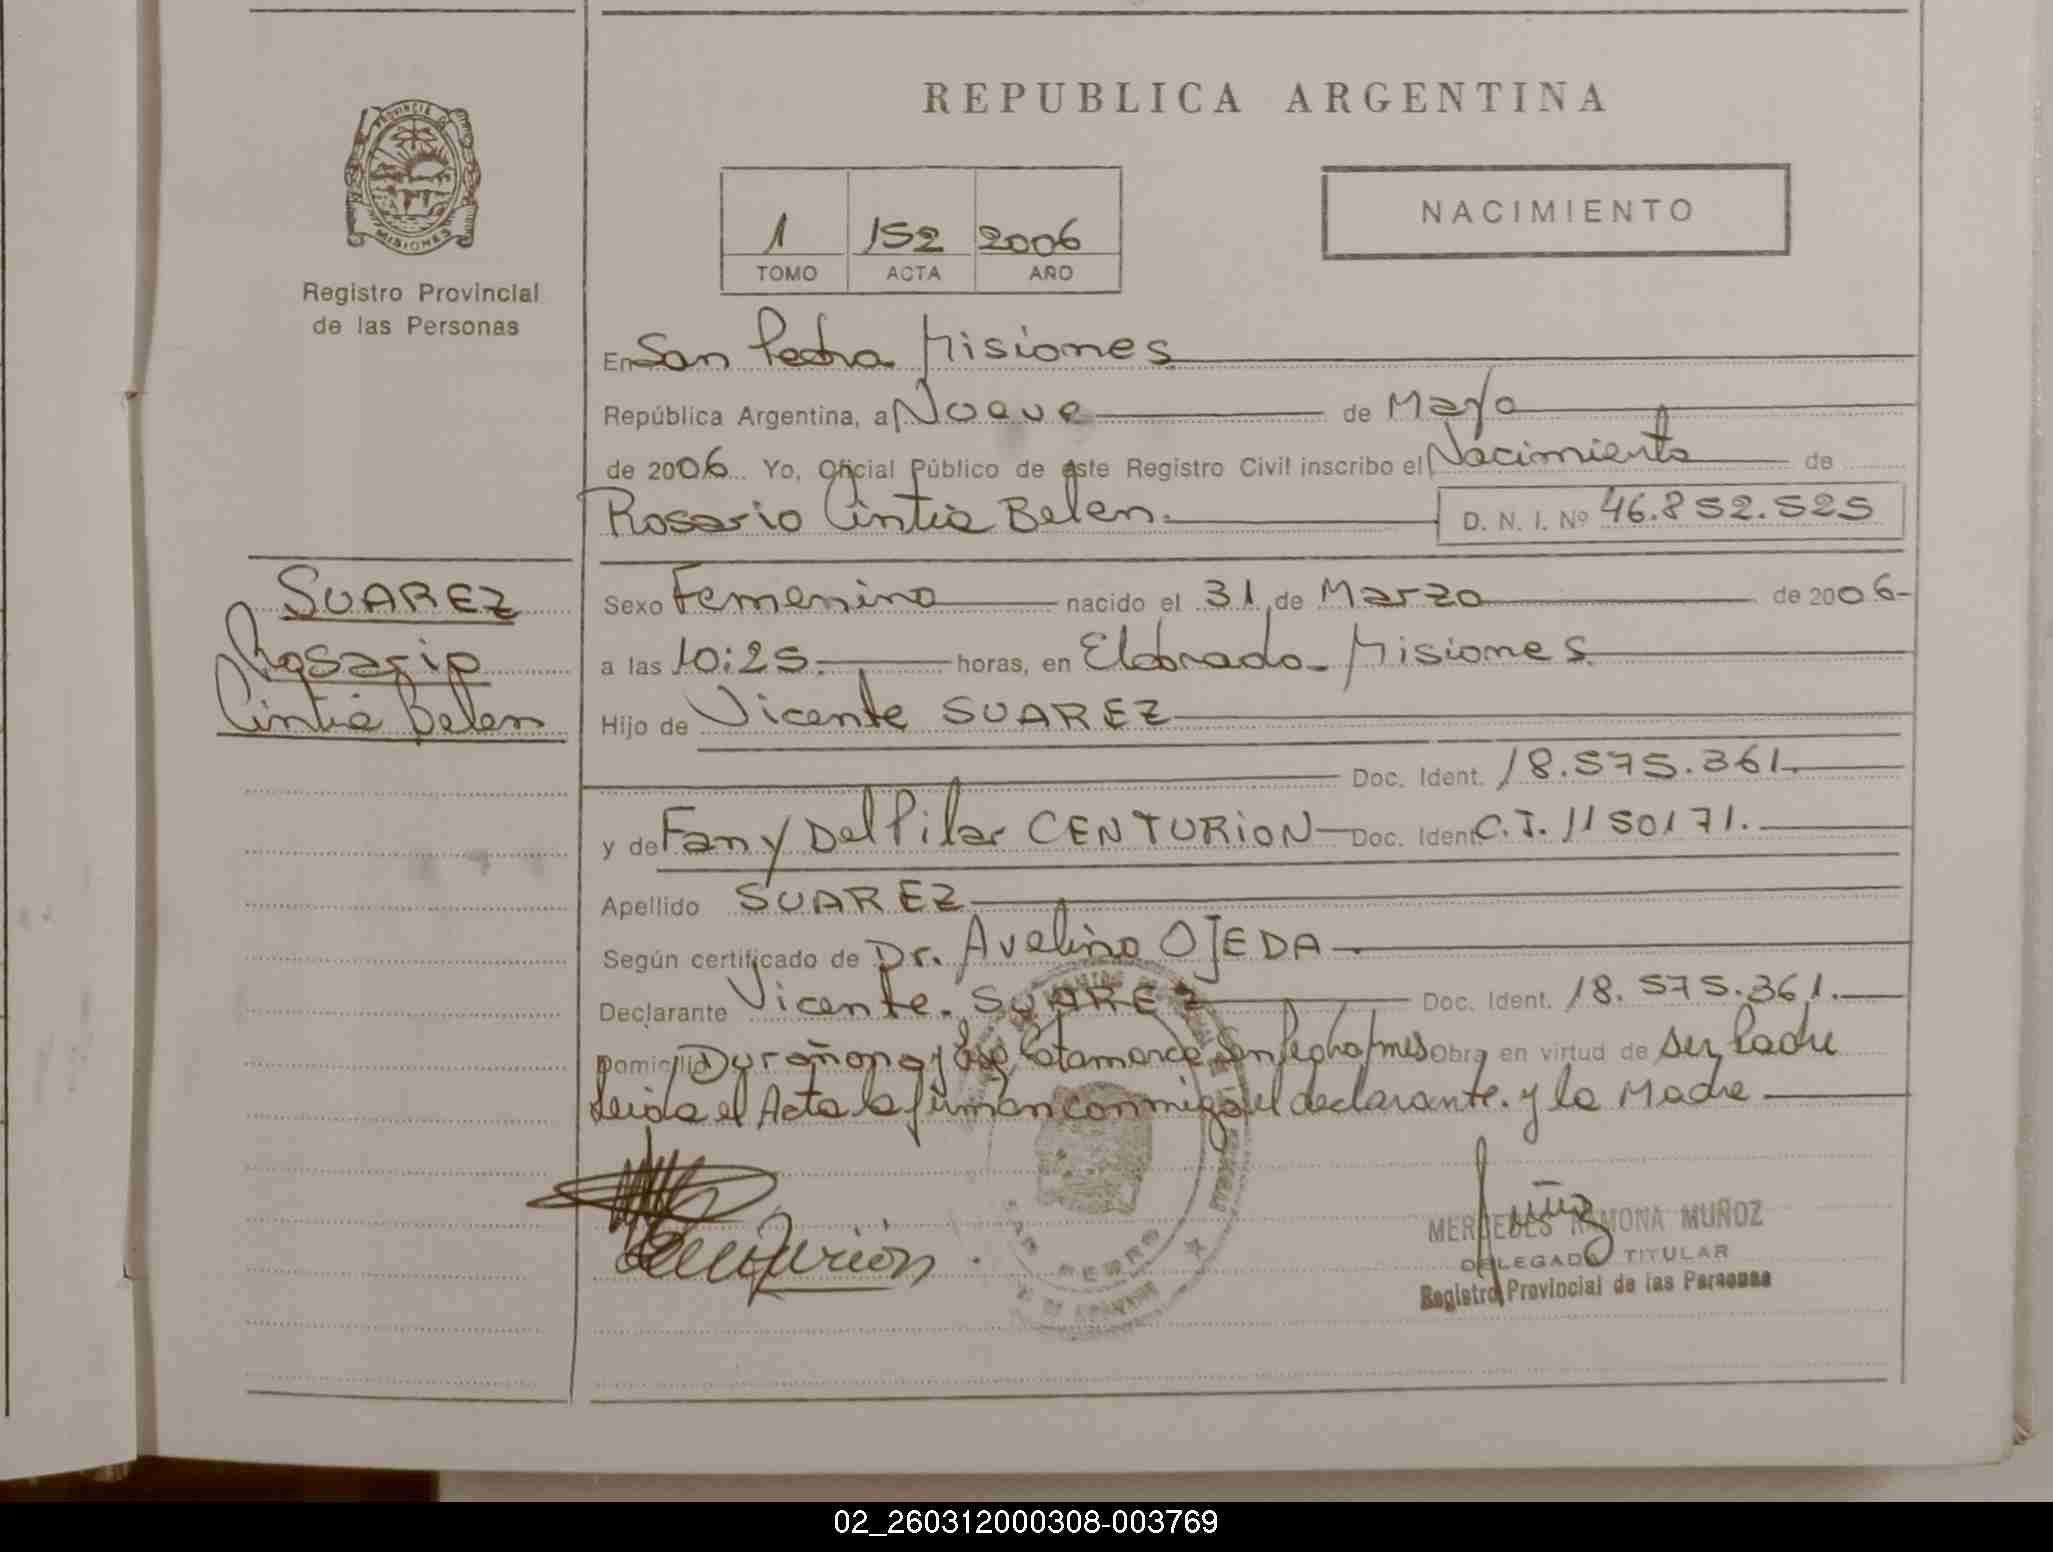 REPUBLICA ARGENTINA
PROVINCIA DE
MISIONES
Registro Provincial
de las Personas
1 152 2006
TOMO ACTA AÑO
NACIMIENTO
En San Pedro Misiones
República Argentina, a Nueve de Mayo
de 2006 Yo, Oficial Público de este Registro Civil inscribo el Nacimiento de
Rosario Cintia Belen. D. N. I. Nº 46.852.525
SUAREZ
Rosario
Cintia Belen
Sexo Femenino nacido el 31 de Marzo de 2006-
a las 10:25. horas, en Eldorado- Misiones.
Hijo de Vicente SUAREZ
Doc. Ident. 18.575.361.
y de Fany Del Pilar CENTURION Doc. Ident. C.I. 1150171.
Apellido SUAREZ
Según certificado de Dr. Avelino OJEDA.
Declarante Vicente. SUAREZ Doc. Ident. 18.575.361.
Domicilio Catamarca San Pedro Mnes Obra en virtud de ser Padre
Leida el Acta la firman conmigo el declarante. y la Madre
Centurión.
SAN PEDRO
MERCEDES RAMONA MUÑOZ
DELEGADO TITULAR
Registro Provincial de las Personas
02_260312000308-003769